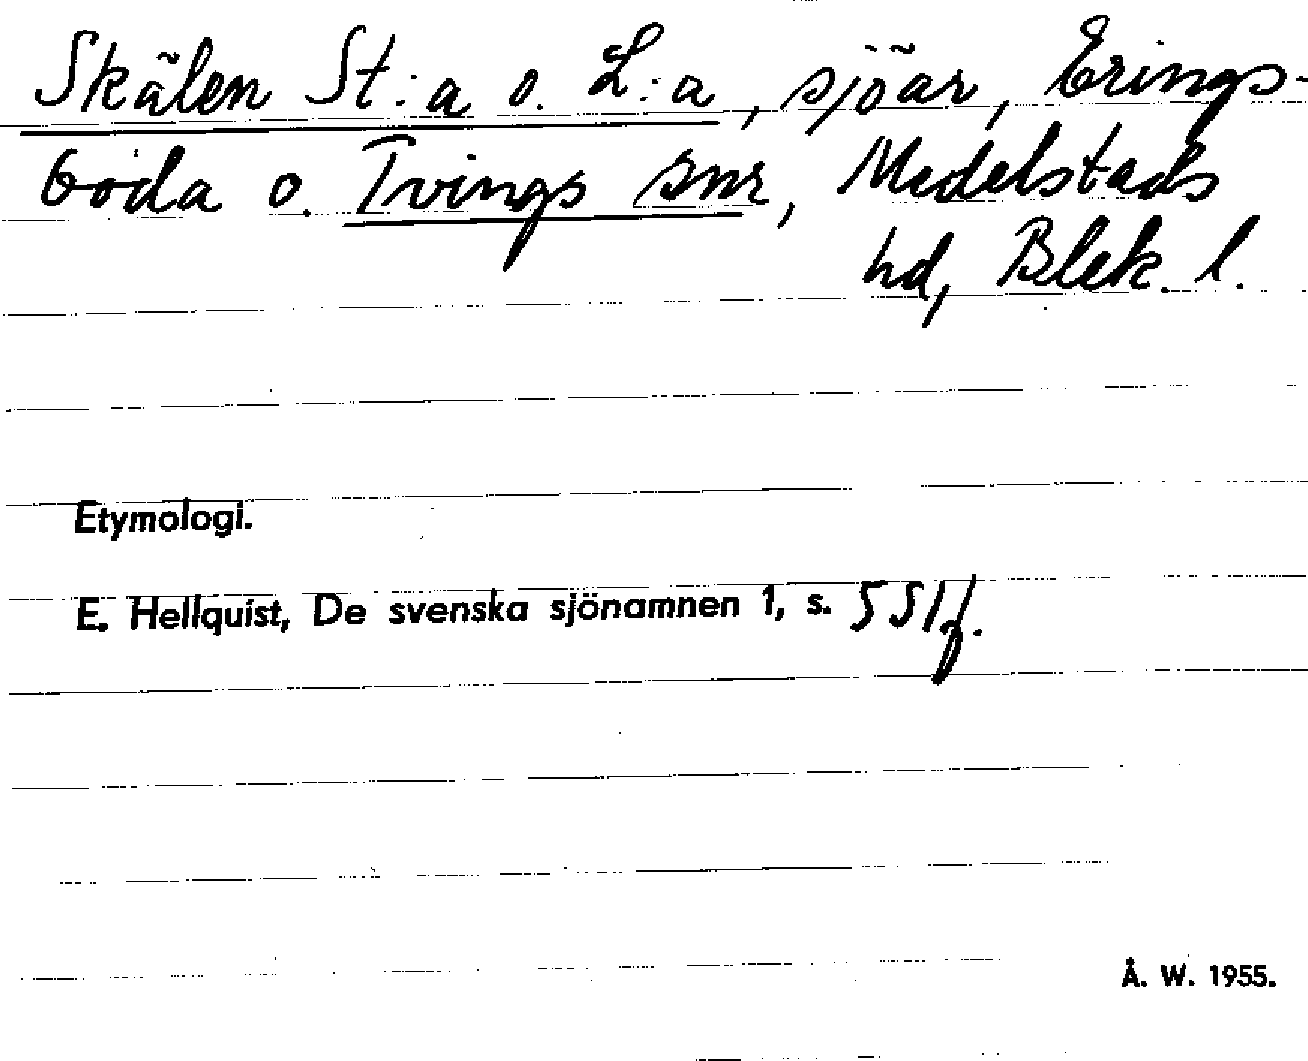 Skälen St:a o. L:a, sjöar, Erings-
boda o. Tvings snr, Medelstads
hd, Blek. l.
Etymologi.
E. Hellquist, De svenska sjönamnen 1, s. 551f.
Å. W. 1955.